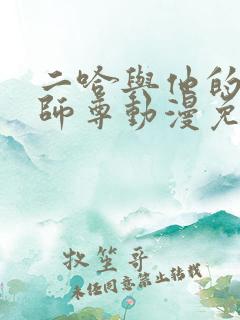 二哈與他的
師尊動漫免
牧笙哥
未经同意禁止转载